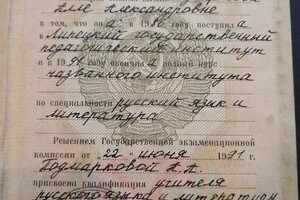 Александровне
в том, что он а в 19 6 году поступил а
в Липецкий государственный
педагогический институт
и в 1991 окончил а полный курс
названного института
по специальности русский язык и
литература
Решением Государственной экзаменационной
комиссии от 22 июня 1991 г.
Подмарковой А.А.
присвоена квалификация учителя
русского языка и литературы